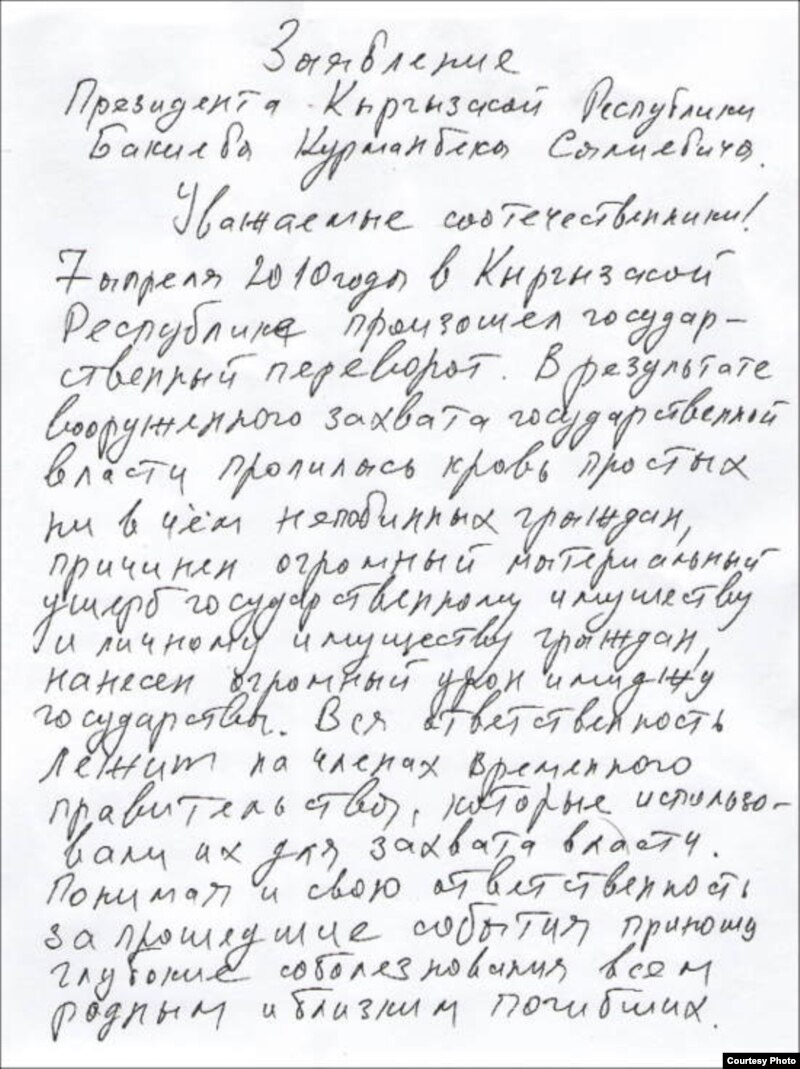 Заявление
Президента Кыргызской Республики
Бакиева Курманбека Салиевича.
Уважаемые соотечественники!
7 апреля 2010 года в Кыргызской
Республике произошел государ-
ственный переворот. В результате
вооруженного захвата государственной
власти пролилась кровь простых
ни в чём неповинных граждан,
причинен огромный материальный
ущерб государственному имуществу
и личному имуществу граждан,
нанесен огромный урон имиджу
государства. Вся ответственность
лежит на членах временного
правительства, которые использо-
вали их для захвата власти.
Понимая и свою ответственность
за прошедшие события приношу
глубокие соболезнования всем
родным и близким погибших.
Courtesy Photo